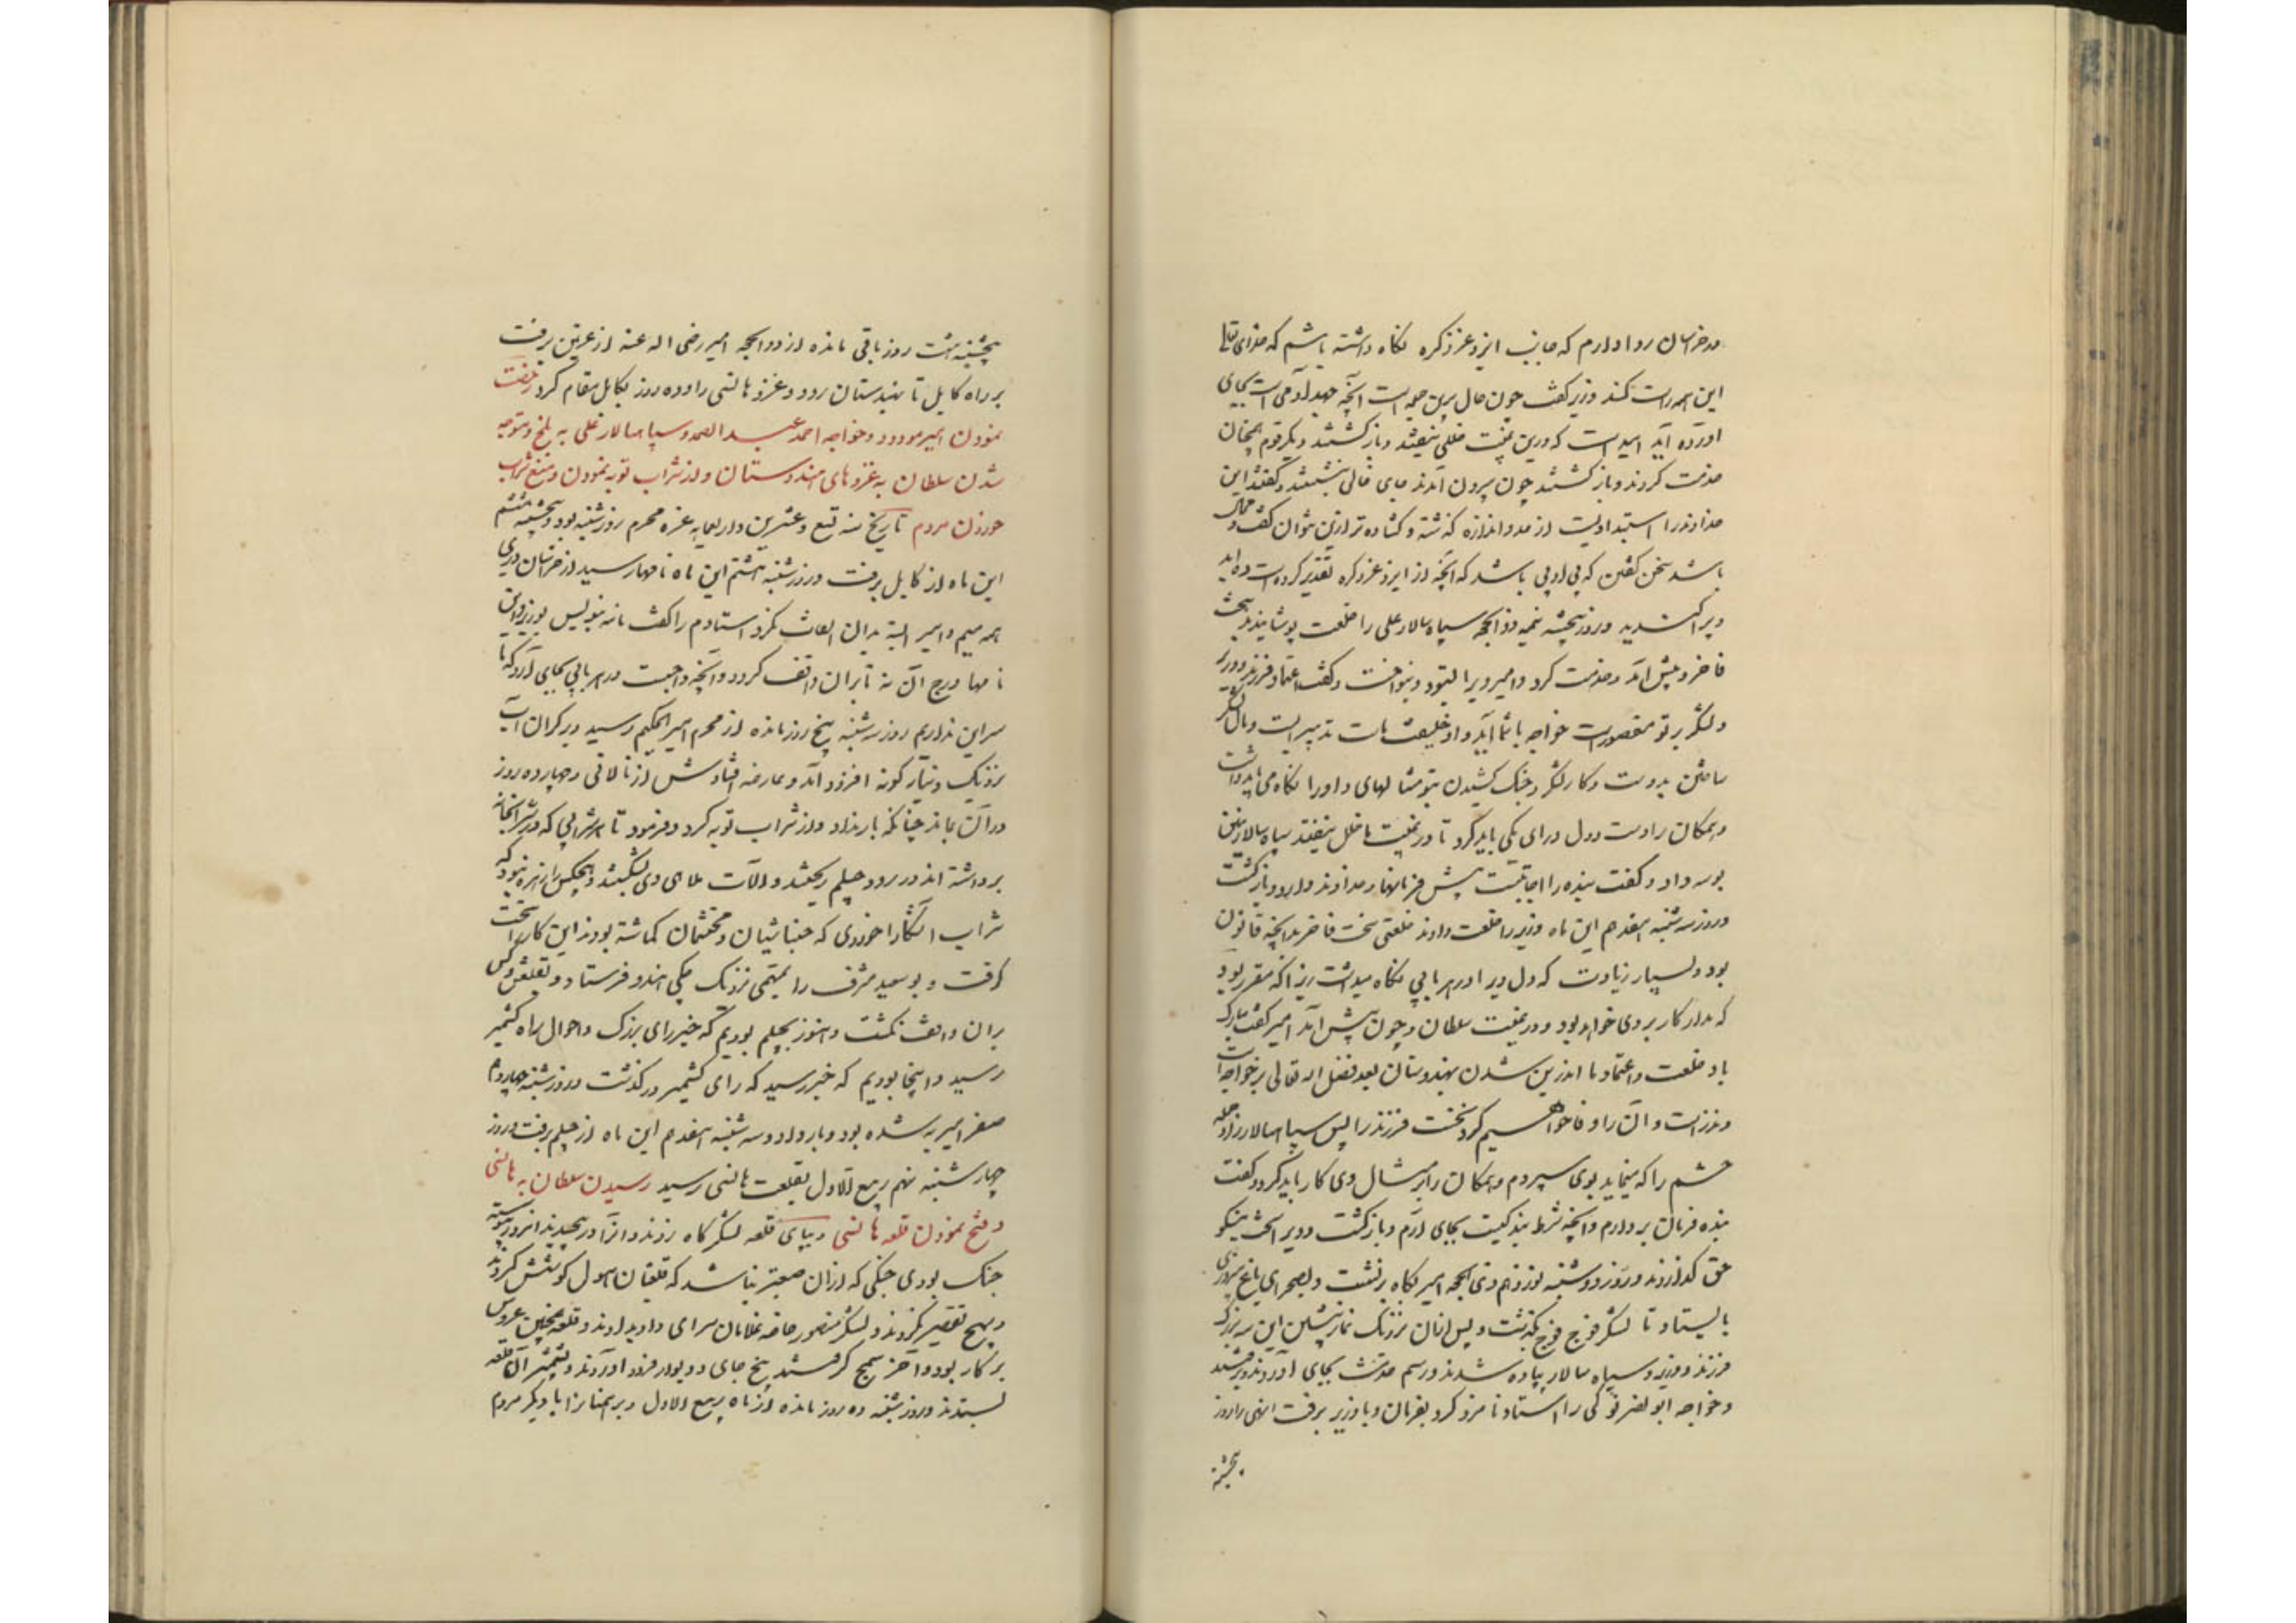 در خراسان روا دارم که جانب ایزد عز ذکره نگاه داشته باشم که خدای تعالی
این همه راست کند وزیر گفت چون حال برین جمله است آنچه جهد آدمی است بجای
آورده آید امید است که درین غیبت خللی نیفتد و بازگشتند و دیگر قوم همچنان
خدمت کردند و بازگشتند چون بیرون آمدند جای خالی بنشستند و گفتند این
خداوند را استبدادیست از حد و اندازه گذشته و گشاده تر ازین نتوان گفت و محال
باشد سخن گفتن که بی ادبی باشد که آنچه از ایزد عز ذکره تقدیر کرده است
و پراکندند و روز پنجشنبه نیمه ذو الحجه سپاه سالار علی را خلعت پوشانیدند سخت
فاخر و پیش آمد و خدمت کرد و امیر ویرا بستود و بنواخت و گفت اعتماد فرزند و وزیر
و لشکر بر تو مقصورست خواجه با شما آید و او خلیفت ماست تدبیر است و مال لشکر
ساختن بدوست و کار لشکر و جنک کشیدن بتو مثالهای او را نگاه می باید داشت
و همکان را دست و دل و رای یکی باید کرد تا در غیبت ما خلل نیفتد سپاه سالار زمین
بوسه داد و گفت بنده را تا جانست پیش فرمانها خداوند دارد و بازگشت
و روز سه شنبه هفدهم این ماه وزیر را خلعت دادند خلعتی سخت فاخر بر آنچه قانون
بود و بسیار زیادت که دل ویرا در هر بابی نگاه میداشت زیرا که مقرر بود
که مدار کار بر وی خواهد بود و در غیبت سلطان و چون پیش آمد امیر گفت مبارک
باد خلعت و اعتماد ما اندرین شدن بهندوستان بعد فضل اله تعالی بر خواجه است
و نذرست و آن را وفا خواهیم کرد نخست فرزند را پس سپاهسالار را و جمله
حشم را که بماند بوی سپردم و همکان را بر مثال وی کار باید کرد و گفت
بنده فرمان بردارم و آنچه شرط بندگیست بجای آرم و بازگشت و ویرا سخت نیکو
حق گذاردند و روز دوشنبه نوزدهم ذی الحجه امیر پگاه برنشست و بصحرای باغ پیروزی
بایستاد تا لشکر فوج فوج بگذشت و پس ازان نزدیک نماز پیشین این سه بزرگ
فرزند و وزیر و سپاه سالار پیاده شدند و رسم خدمت بجای آوردند و برفتند
و خواجه ابو نصر نوکی را استاد نامزد کرد بفرمان و با وزیر برفت انهی را روز
پنجشنبه
پنجشنبه هشت روز باقی مانده از ذوالحجه امیر رضی اله عنه از غزنین برفت
بر راه کابل تا بهندوستان رود و غزو هانسی را و ده روز بکابل مقام کرد رخصت
نمودن امیر مودود و خواجه احمد عبد الصمد و سپاهسالار علی به بلخ و متوجه
شدن سلطان به غزو های هندوستان و از شراب توبه نمودن و منع شراب
خوردن مردم تاریخ سنه تسع و عشرین و اربعمایه غره محرم روز شنبه بود و پنجشنبه ششم
این ماه از کابل برفت و روز شنبه هشتم این ماه نامها رسید از خراسان و ری
همه مهم و امیر البته بدان التفات نکرد استادم را گفت نامه بنویس بوزیر و این
نامها درج آن نه تا بران واقف گردد و آنچه واجبست در هر بابی بجای آرد که ما
سر این نداریم روز سه شنبه پنج روز مانده از محرم امیر بجیلم رسید و بر کران آب
نزدیک دینار کوته فرود آمد و عارضه افتادش از نالانی و چهارده روز
در آن بماند چنانکه بار نداد و از شراب توبه کرد و فرمود تا هر شرابی که در شرابخانه
برداشته اند در رود جیلم ریختند و آلات ملاهی وی بشکستند و هیچکس را زهره نبود که
شراب آشکارا خوردی که جنباشیان و محتسبان گماشته بودند این کار را سخت
گرفت و بوسعید مشرف را بمهمی نزدیک چکی هندو فرستاد و بقلعتی و کس
بران واقف نگشت و هنوز بجیلم بودیم که خبر رای بزرک و احوال راه کشمیر
رسید و اینجا بودیم که خبر رسید که رای کشمیر درگذشت و روز شنبه چهاردهم
صفر امیر به شده بود و بار داد و سه شنبه هفدهم این ماه از جیلم برفت و روز
چهارشنبه نهم ربیع الاول بقلعت هانسی رسید رسیدن سلطان به هانسی
و فتح نمودن قلعه هانسی و بپای قلعه لشکرگاه زدند و آنرا در پیچیدند و هر روز پیوسته
جنک بودی جنگی که ازان صعبتر نباشد که قلعتیان بهول کوشش کردند
و هیچ تقصیر نکردند و لشکر منصور خاصه غلامان سرای داد بدادند و قلعه همچنین عروس
بر کار بود و آخر سمج گرفتند پنج جای و دیوار فرود آوردند و بشمشیر آن قلعه
بستدند و روز شنبه ده روز مانده از ماه ربیع الاول و برهمنان را با دیگر مردم